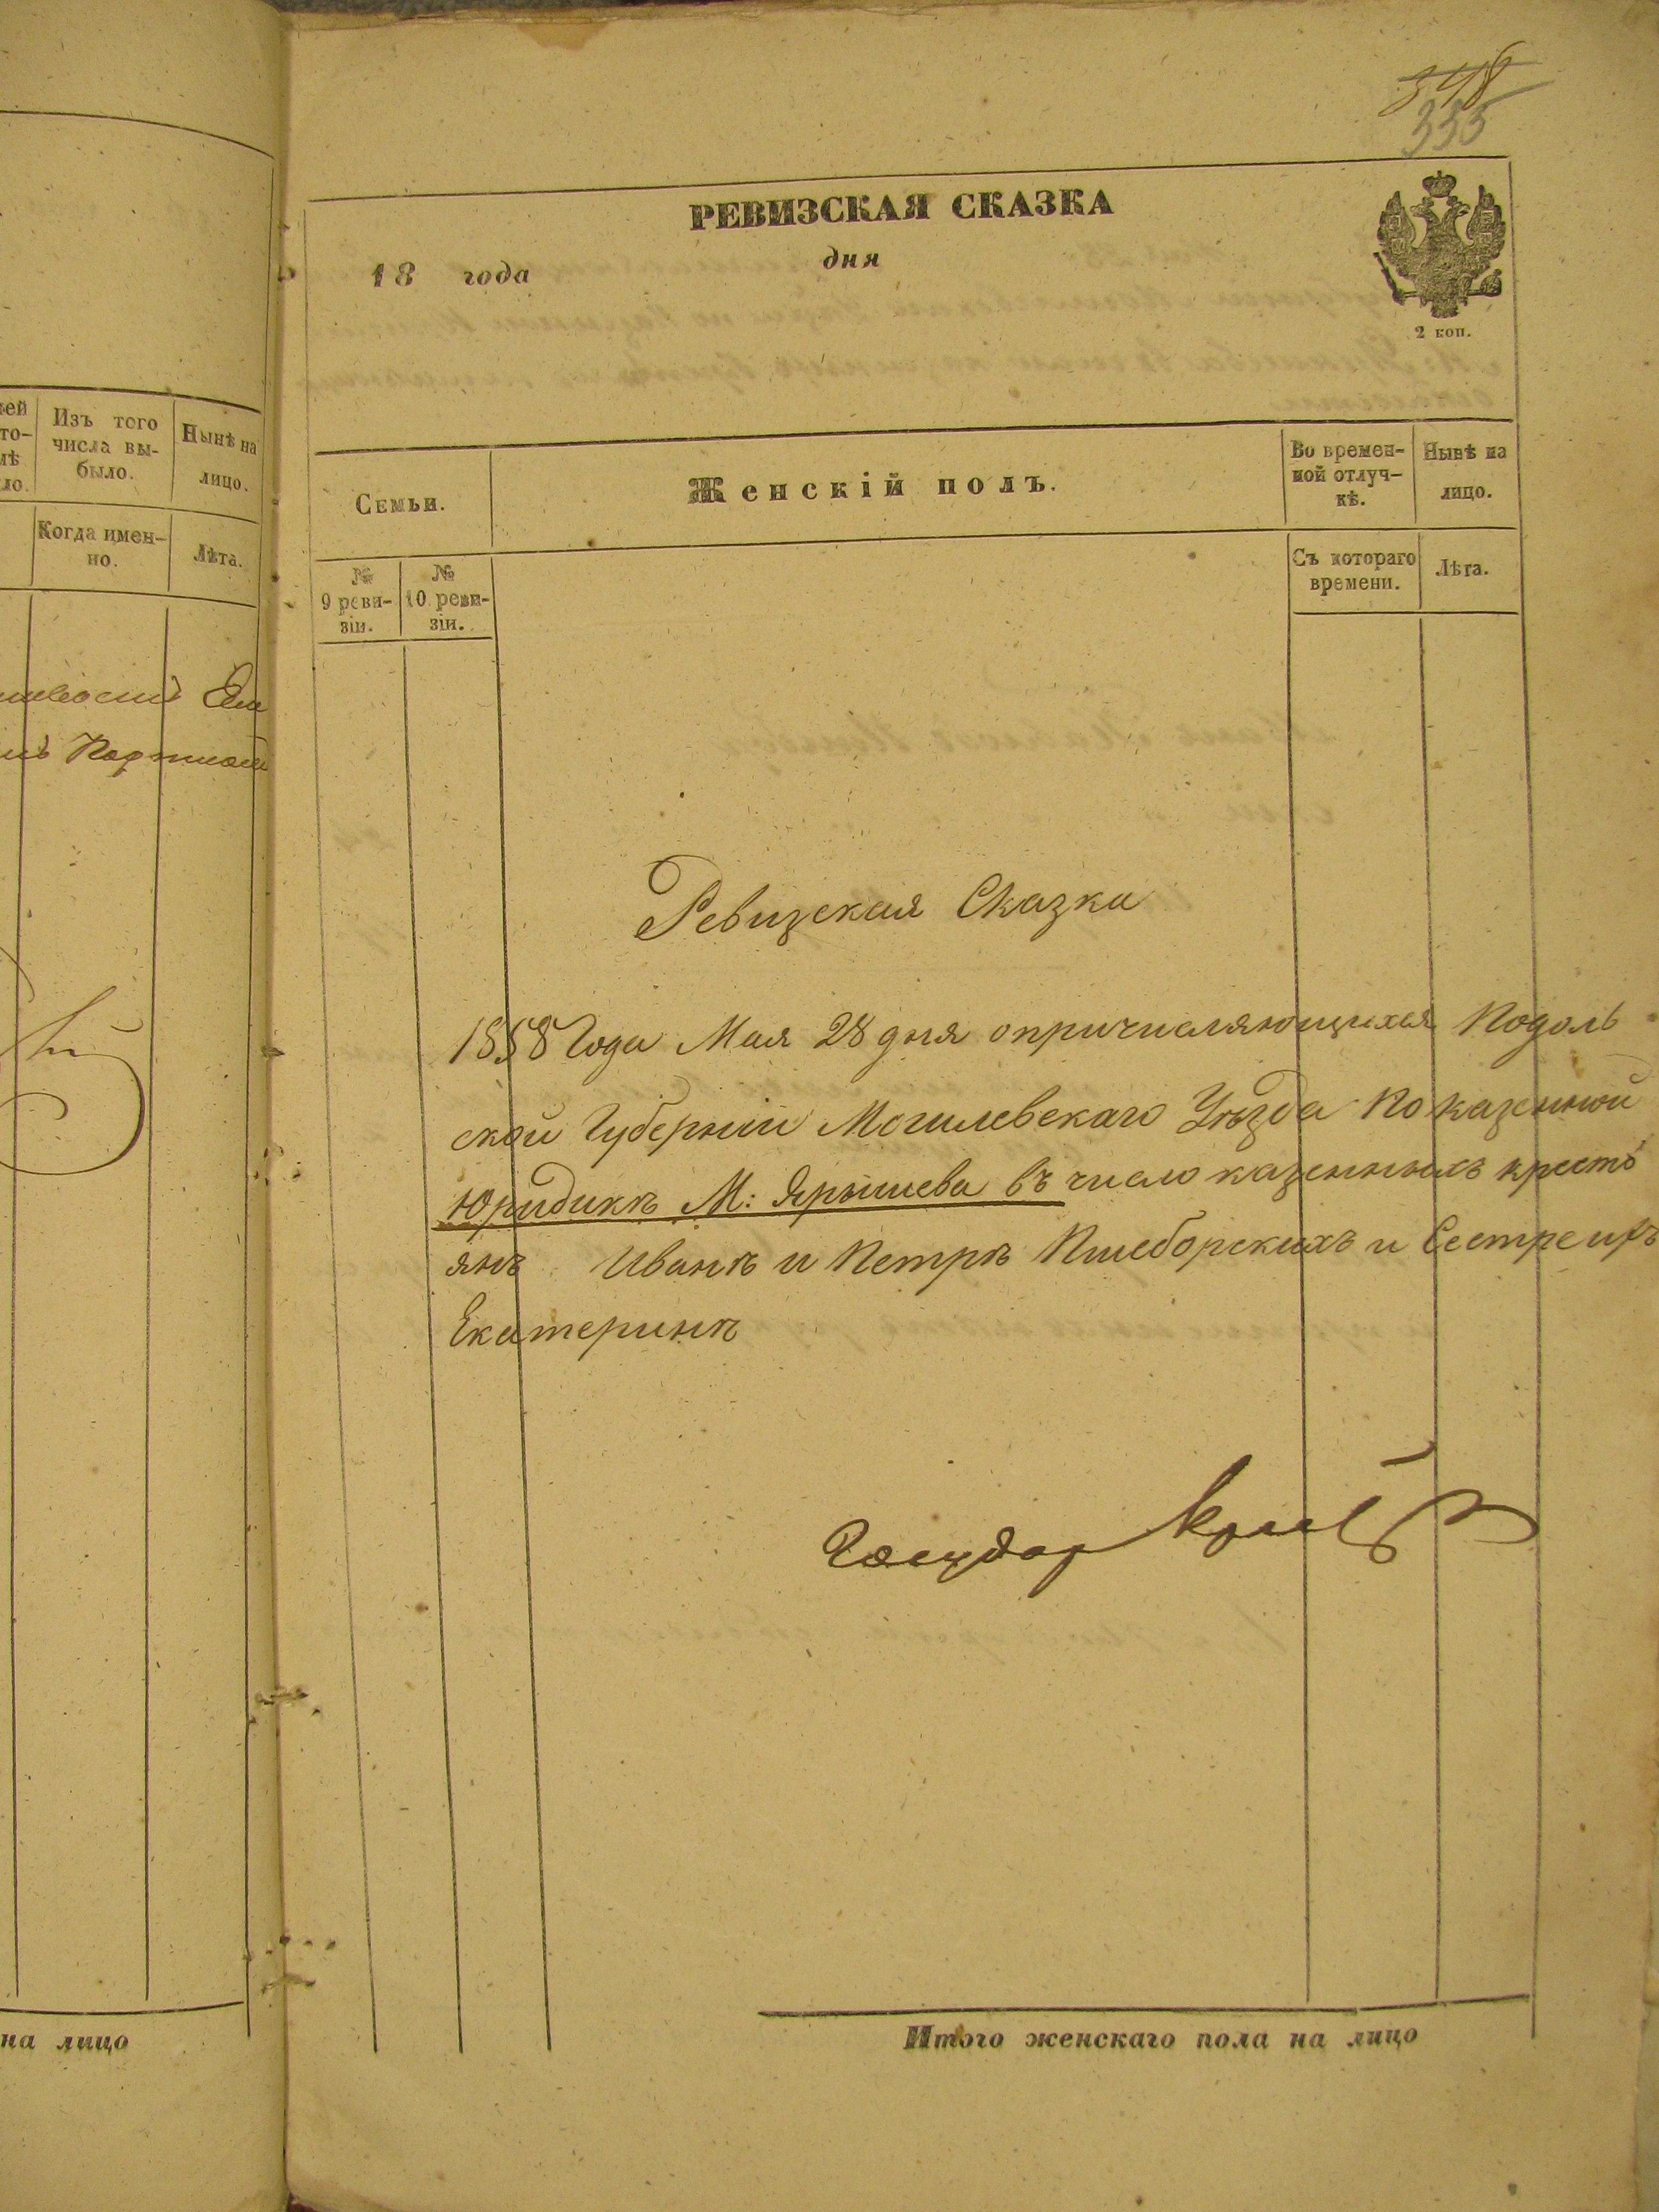 348
335
РЕВИЗСКАЯ СКАЗКА
18 года
дня
2 коп.
Изъ того
числа вы-
было.
Нынѣ на
лицо.
Когда имен-
но.
Лѣта.
на лицо
Семьи.
Женскій полъ.
Во времен-
ной отлуч-
кѣ.
Нынѣ на
лицо.
№
9 реви-
зіи.
№
10 реви-
зіи.
Съ котораго
времени.
Лѣта.
Ревизская Сказка
1858 Года Мая 28 дня опричисляющихся Подоль
ской Губерніи Могилевскаго Уѣзда По казенной
Юридикѣ М: Ярышева въ число казенныхъ кресть
янъ Иванѣ и Петрѣ Пшеборскихъ и Сестре ихъ
Екатеринѣ
Итого женскаго пола на лицо